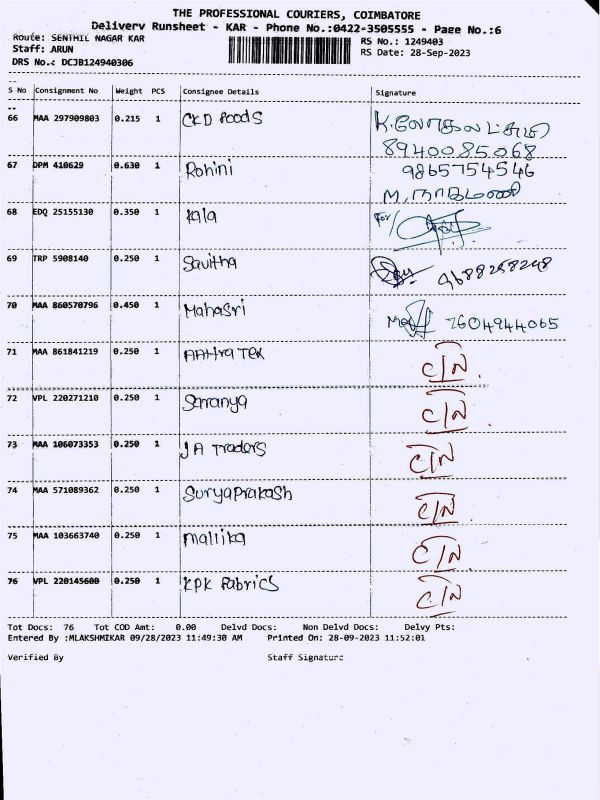 THE PROFESSIONAL COURIERS, COIMBATORE
Delivery Runsheet - KAR - Phone No.:0422-3505555 - Page No.:6
Route: SENTHIL NAGAR KAR RS No.: 1249403
Staff: ARUN RS Date: 28-Sep-2023
DRS No.: DCJB124940306
S No Consignment No Weight PCS Consignee Details Signature
66 MAA 297909803 0.215 1 CKD Foods
8940085068
67 DPM 410629 0.630 1 Rohini 9865754546
M, நாகமணி
68 EDQ 25155130 0.350 1 Kala For/
69 TRP 5908140 0.250 1 Savitha 9688258248
70 MAA 860570796 0.450 1 Mahasri 7604944065
71 MAA 861841219 0.250 1 AAHra TEK C/N
72 VPL 220271210 0.250 1 Saranya C/N
73 MAA 106073353 0.250 1 JA Traders C/N
74 MAA 571089362 0.250 1 SuryaPrakash C/N
75 MAA 103663740 0.250 1 mallika C/N
76 VPL 220145600 0.250 1 KPK Fabrics C/N
Tot Docs: 76 Tot COD Amt: 0.00 Delvd Docs: Non Delvd Docs: Delvy Pts:
Entered By :MLAKSHMIKAR 09/28/2023 11:49:30 AM Printed On: 28-09-2023 11:52:01
Verified By Staff Signature